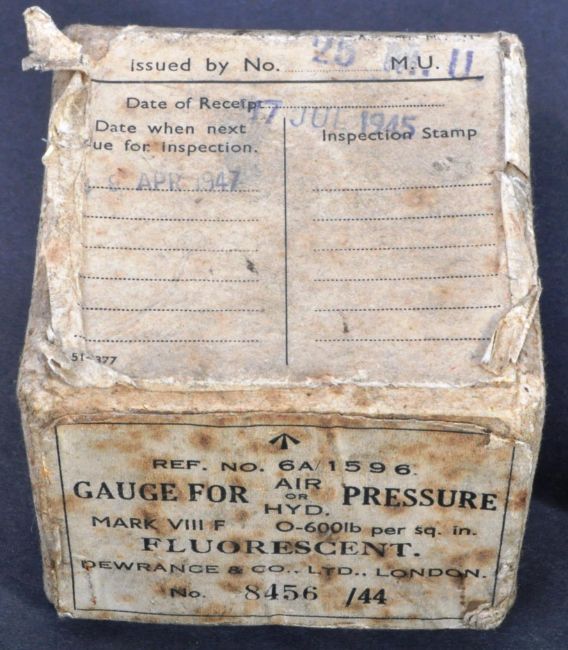 Issued by No. 25 M.U.
Date of Receipt 17 JUL 1945
Date when next
due for inspection.
Inspection Stamp
8 APR 1947
51-377
REF. NO. 6A/1596.
GAUGE FOR AIR OR HYD. PRESSURE
MARK VIII F 0-600lb per sq. in.
FLUORESCENT.
DEWRANCE & CO., LTD., LONDON.
No. 8456 /44